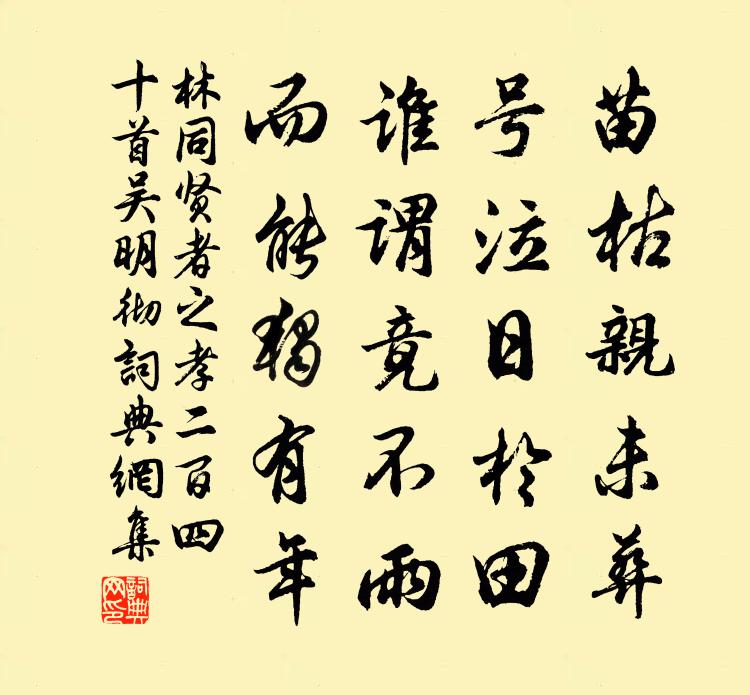 苗枯親未葬
号泣日於田
谁謂竟不雨
而能獨有年
林同贤者之孝二百四
十首吴明彻詞典網集
詞典
网印